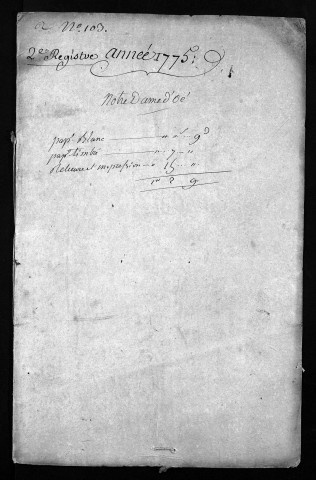 N.º 103.
2.e Registre année 1775.
Notre Dame d'Oé
pap.r Blanc " " 9 d
pap.r timbré " 7 "
Relieure et impression " 15 "
1# 2 9